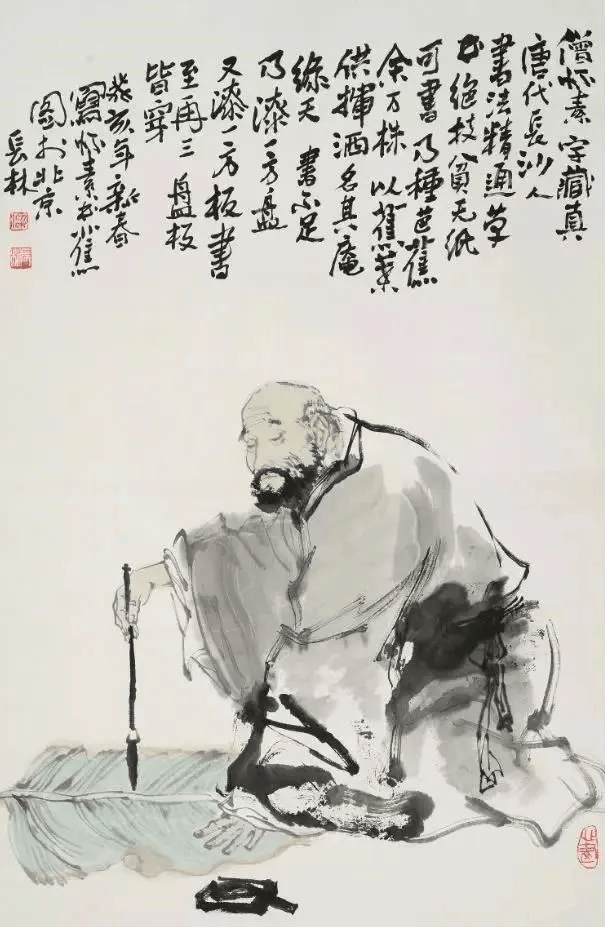 僧怀素 字藏真
唐代长沙人
書法精通草
书绝技貧无纸
可書乃種芭蕉
余万株以蕉葉
供揮洒名其庵
綠天 書不足
乃漆一方盘
又漆一方板書
至再三盘板
皆穿
癸亥年新春
寫怀素书蕉
图于北京
长林